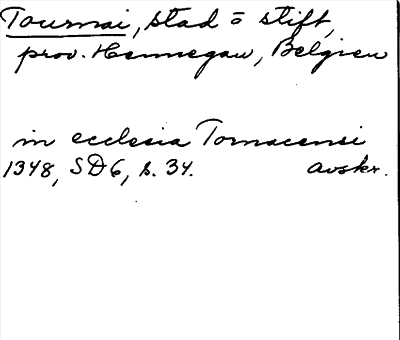 Tournai, stad o stift,
prov. Hennegau, Belgien
in ecclesia Tornacensi
1348, SD6, s. 34. Avskr.